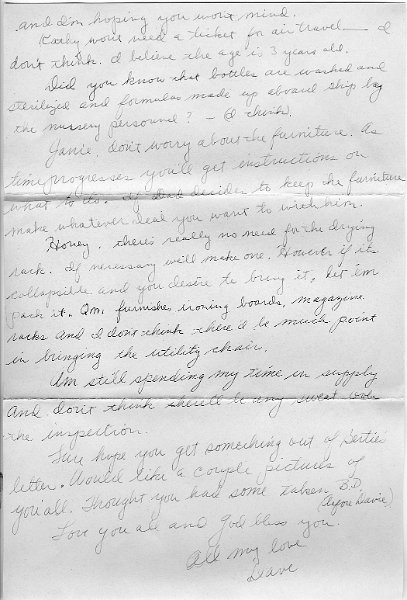 and Im hoping you wont mind.
Kathy won't need a ticket for air travel — I
don't think. I believe the age is 3 years old.
Did you know that bottles are washed and
sterilized and formulas made up aboard ship by
the nursery personnel? — I think.
Janie, don't worry about the furniture. As
time progresses you'll get instructions on
what to do. If Dad decides to keep the furniture
make whatever deal you want to with him.
Honey, there's really no need for the drying
rack. If necessary we'll make one. However if it's
collapsible and you desire to bring it, let 'em
pack it. Qm. furnishes ironing boards, magazine
racks and I don't think there'd be much point
in bringing the utility chair.
Am still spending my time in supply
and don't think there'll be any sweat over
the inspection.
Sure hope you get something out of
letter. Would like a couple pictures of
you all. Thought you had some taken B.D.
(Before Davie)
Love you all and God bless you.
All my love
Dave